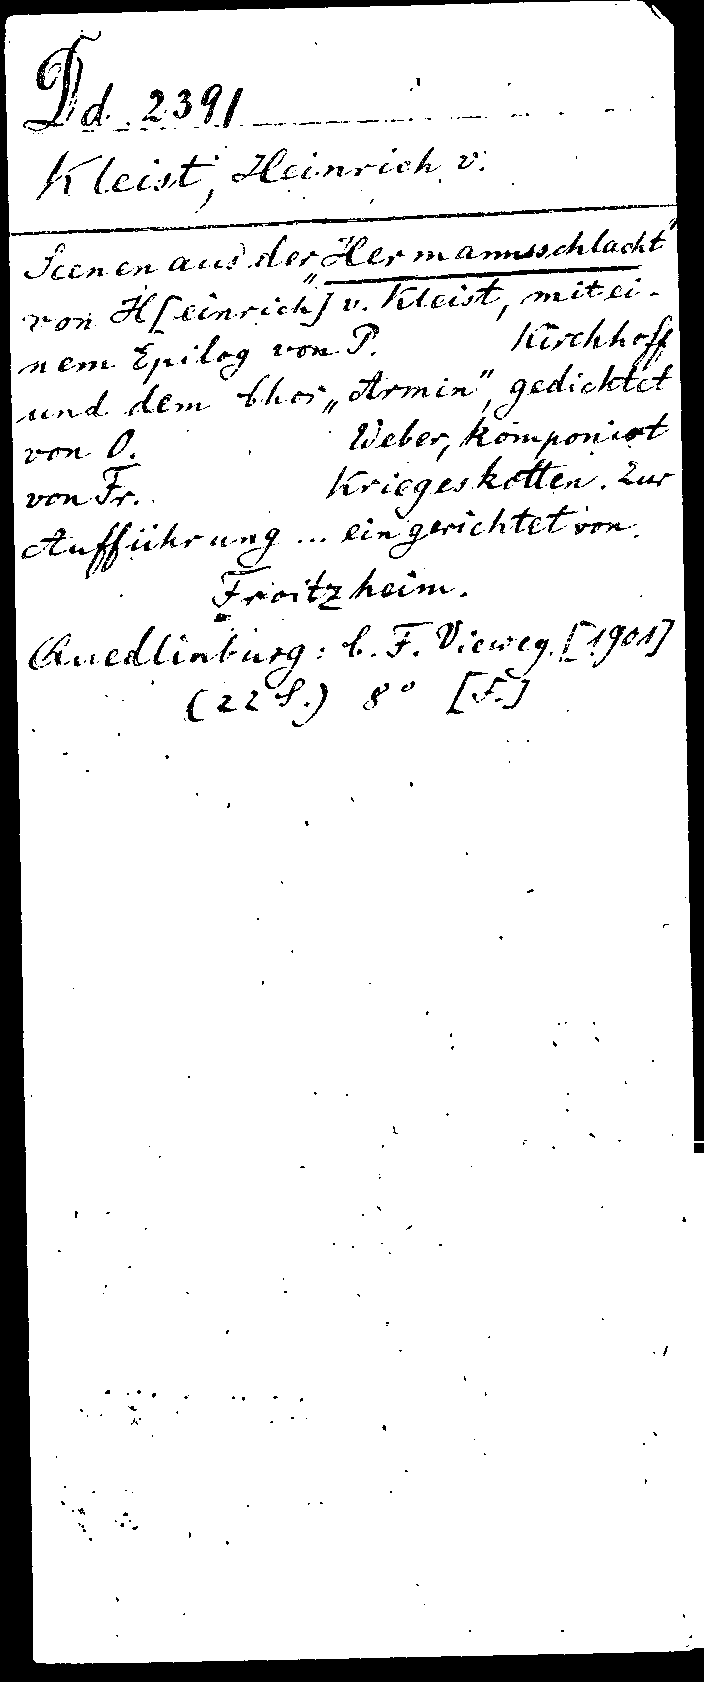 Dd. 2391
Kleist, Heinrich v.
Scenen aus der „Hermannsschlacht"
von H[einrich] v. Kleist, mit ei-
nem Epilog von P. Kirchhoff
und dem Chor „Armin", gedichtet
von O. Weber, komponirt
von Fr. Kriegeskotten. Zur
Aufführung ... eingerichtet von.
Froitzheim.
Quedlinburg: C. F. Vieweg. [1901]
(22 S.) 8° [F.]